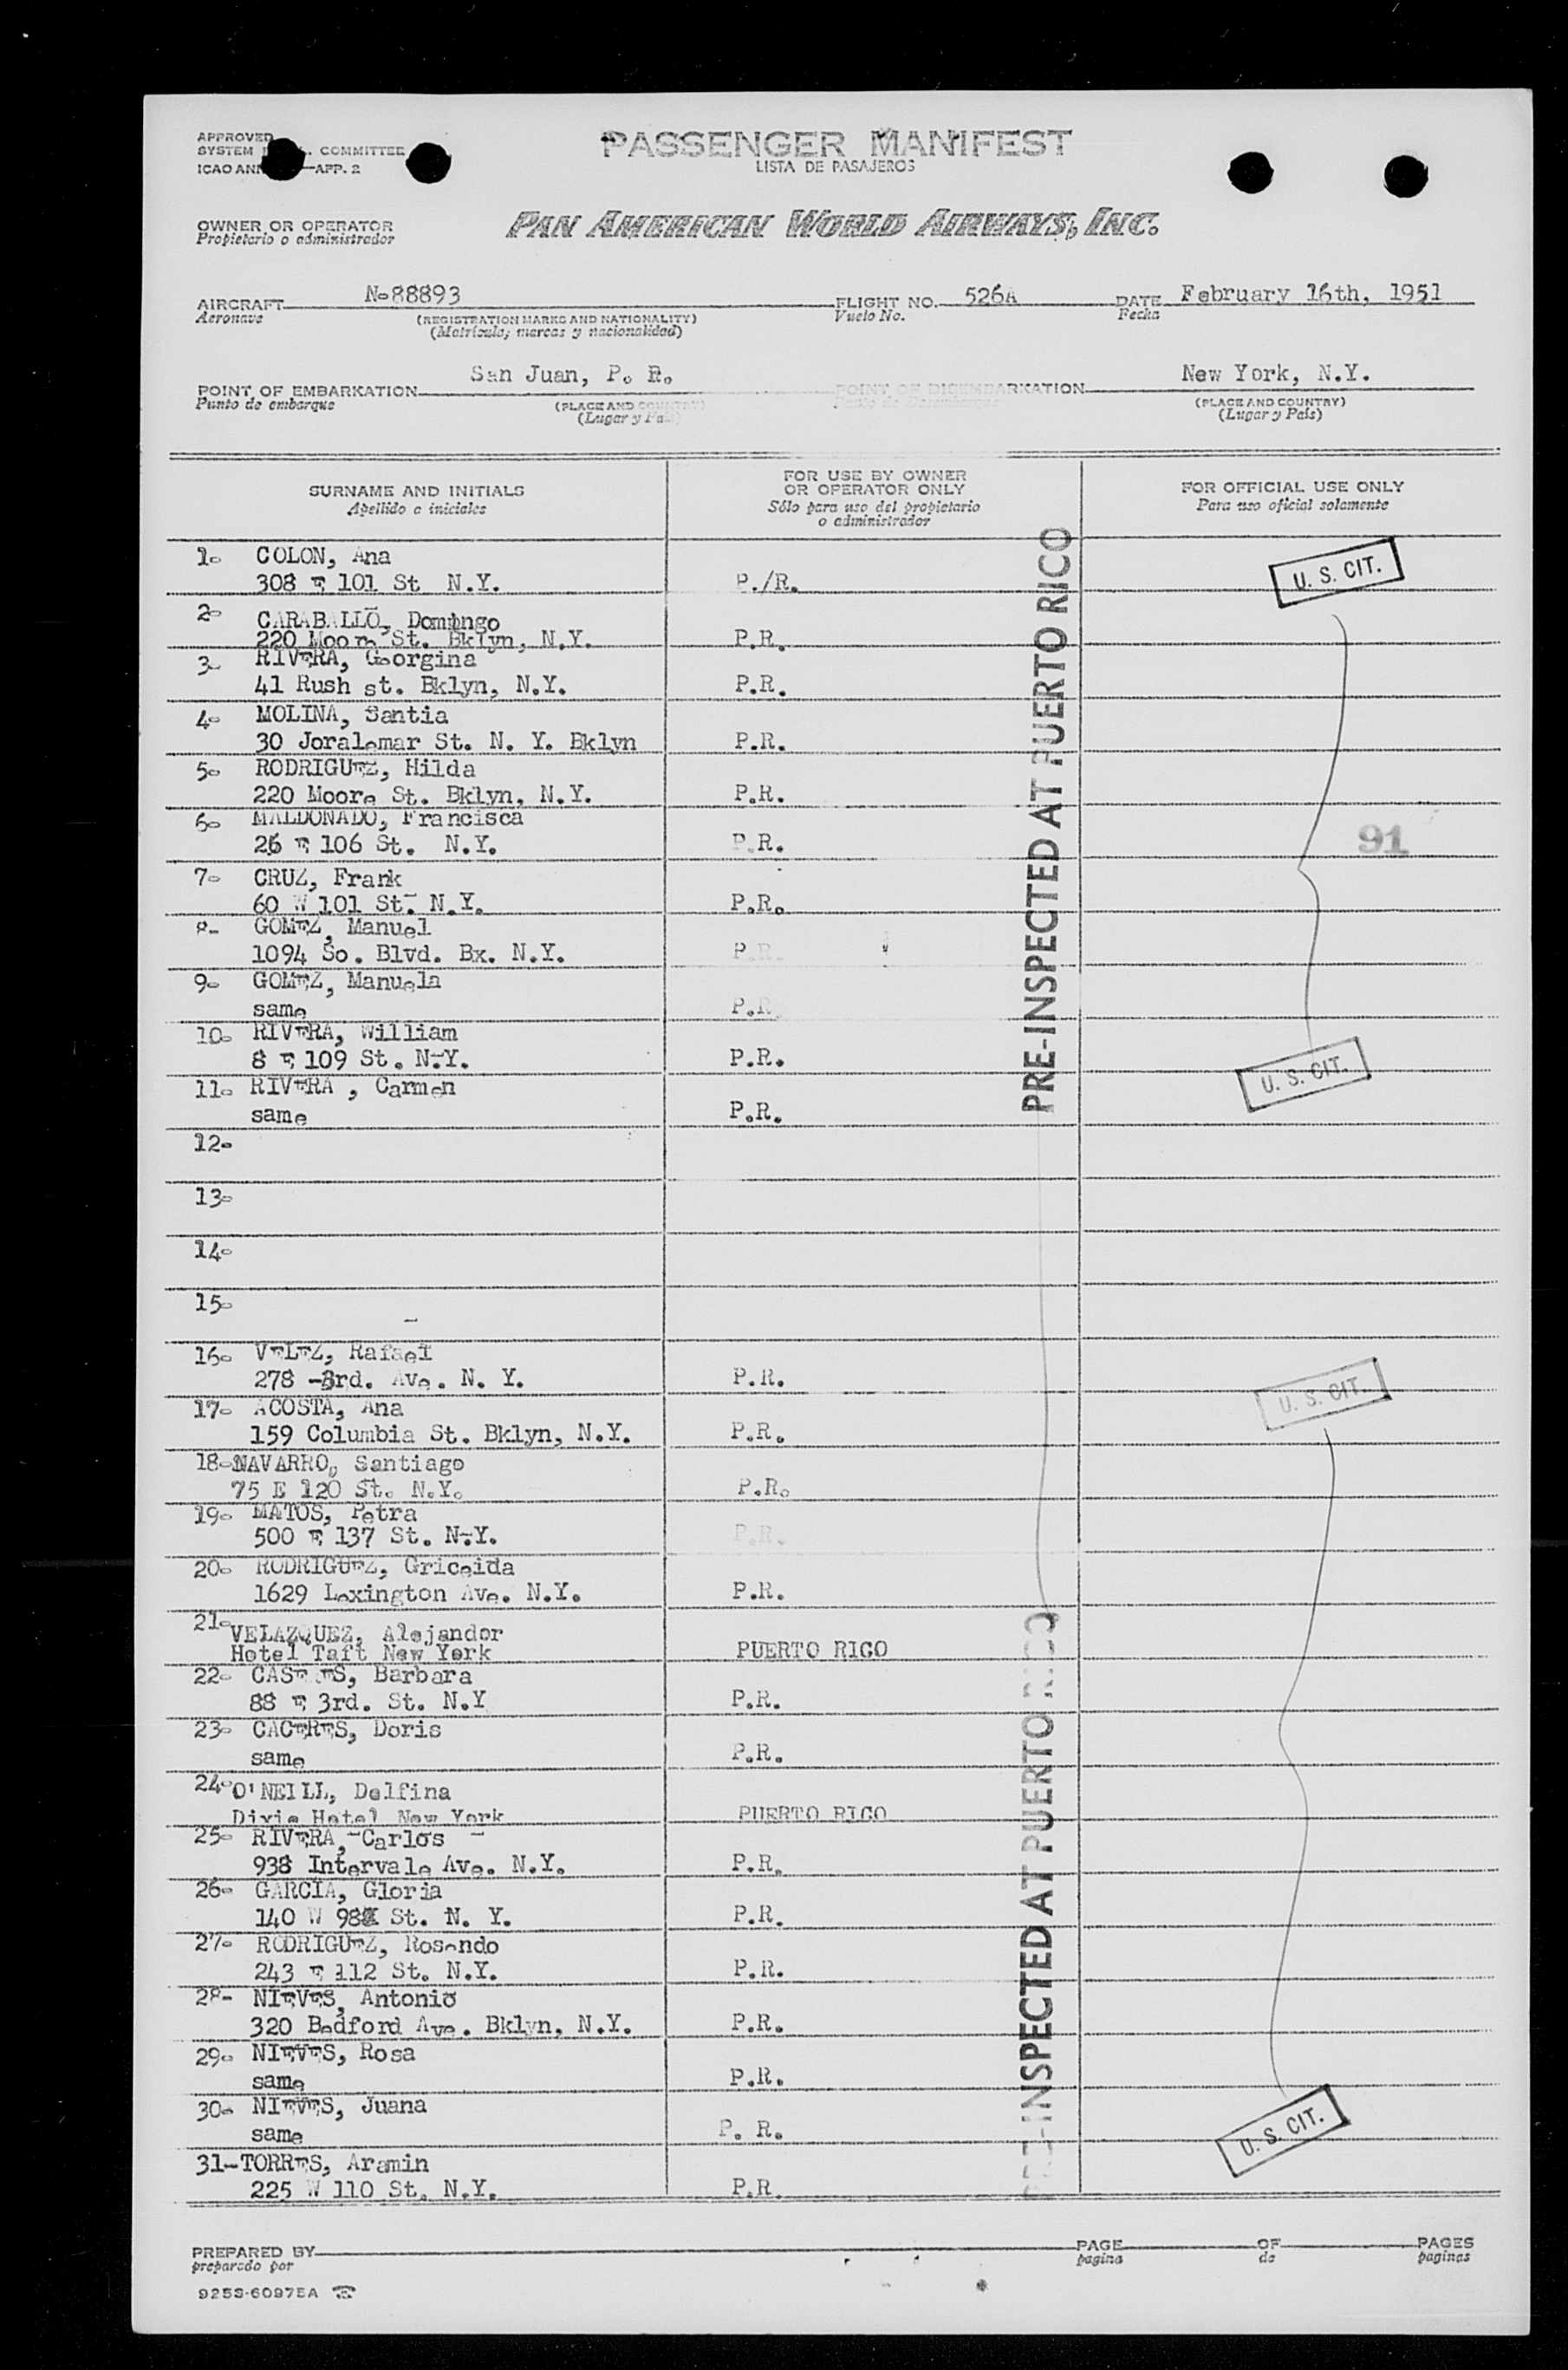 APPROVED
SYSTEM COMMITTEE
ICAO APP. 2
PASSENGER MANIFEST
LISTA DE PASAJEROS
OWNER OR OPERATOR
Propietario o administrador
PAN AMERICAN WORLD AIRWAYS, INC.
AIRCRAFT N-88893 FLIGHT NO. 526A DATE February 16th, 1951
Aeronave (REGISTRATION MARKS AND NATIONALITY) Vuelo No. Fecha
(Matrícula; marcas y nacionalidad)
POINT OF EMBARKATION San Juan, P. R. POINT OF DISEMBARKATION New York, N.Y.
Punto de embarque (PLACE AND COUNTRY) (PLACE AND COUNTRY)
(Lugar y Pa (Lugar y País)
SURNAME AND INITIALS
Apellido e iniciales
FOR USE BY OWNER
OR OPERATOR ONLY
Sólo para uso del propietario
o administrador
FOR OFFICIAL USE ONLY
Para uso oficial solamente
PRE-INSPECTED AT PUERTO RICO
1- COLON, Ana
308 E 101 St N.Y. P./R.
U. S. CIT.
2- CARABALLO, Domingo
220 Moore St. Bklyn, N.Y. P.R.
3- RIVERA, Georgina
41 Rush st. Bklyn, N.Y. P.R.
4- MOLINA, Santia
30 Joralemar St. N. Y. Bklyn P.R.
5- RODRIGUEZ, Hilda
220 Moore St. Bklyn, N.Y. P.R.
6- MALDONADO, Francisca
26 E 106 St. N.Y. P.R.
91
7- CRUZ, Frank
60 W 101 St. N.Y. P.R.
8- GOMEZ, Manuel
1094 So. Blvd. Bx. N.Y. P.R.
9- GOMEZ, Manuela
same P.R.
10- RIVERA, William
8 E 109 St. N.Y. P.R.
U. S. CIT.
11- RIVERA , Carmen
same P.R.
12-
13-
14-
15-
16- VELEZ, Rafael
278 -3rd. Ave. N. Y. P.R.
U. S. CIT.
17- ACOSTA, Ana
159 Columbia St. Bklyn, N.Y. P.R.
18- NAVARRO, Santiago
75 E 120 St. N.Y. P.R.
19- MATOS, Petra
500 E 137 St. N.Y. P.R.
20- RODRIGUEZ, Griceida
1629 Lexington Ave. N.Y. P.R.
21- VELAZQUEZ, Alejandor
Hotel Taft New York PUERTO RICO
PRE-INSPECTED AT PUERTO RICO
22- BARBARA
88 E 3rd. St. N.Y P.R.
23- CACERES, Doris
same P.R.
24- O'NEILL, Delfina
Dixie Hotel New York PUERTO RICO
25- RIVERA, Carlos
938 Intervale Ave. N.Y. P.R.
26- GARCIA, Gloria
140 W 98 St. N. Y. P.R.
27- RODRIGUEZ, Rosendo
243 E 112 St. N.Y. P.R.
28- NIEVES, Antonio
320 Bedford Ave. Bklyn, N.Y. P.R.
29- NIEVES, Rosa
same P.R.
30- NIEVES, Juana
same P. R.
U. S. CIT.
31-TORRES, Aramin
225 W 110 St. N.Y. P.R.
PREPARED BY PAGE OF PAGES
preparado por pagina de paginas
9253-60975A